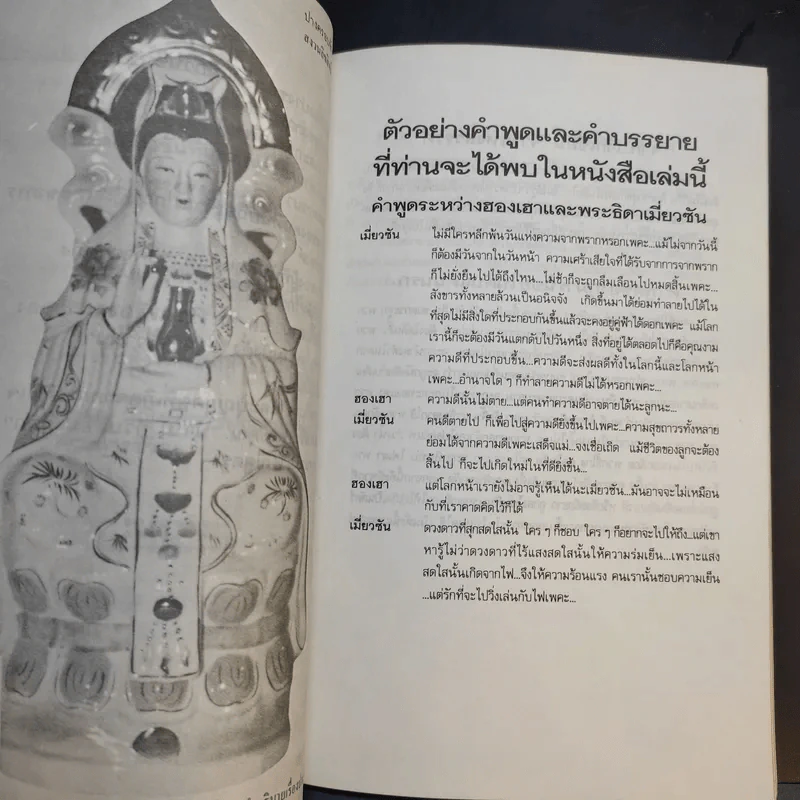 ตัวอย่างคำพูดและคำบรรยาย
ที่ท่านจะได้พบในหนังสือเล่มนี้
คำพูดระหว่างฮองเฮาและพระธิดาเมี่ยวซัน
เมี่ยวซัน ไม่มีใครหลีกพ้นวันแห่งความจากพรากหรอกเพคะ...แม้ไม่จากวันนี้
ก็ต้องมีวันจากในวันหน้า ความเศร้าเสียใจที่ได้รับจากการจากพราก
ก็ไม่ยั่งยืนไปได้ถึงไหน...ไม่ช้าก็จะถูกลืมเลือนไปหมดสิ้นเพคะ...
สังขารทั้งหลายล้วนเป็นอนิจจัง เกิดขึ้นมาได้ย่อมทำลายไปได้ใน
ที่สุดไม่มีสิ่งใดที่ประกอบกันขึ้นแล้วจะคงอยู่คู่ฟ้าได้ดอกเพคะ แม้โลก
เรานี้ก็จะต้องมีวันแตกดับไปวันหนึ่ง สิ่งที่อยู่ได้ตลอดไปก็คือคุณงาม
ความดีที่ประกอบขึ้น...ความดีจะส่งผลดีทั้งในโลกนี้และโลกหน้า
เพคะ...อำนาจใด ๆ ก็ทำลายความดีไม่ได้หรอกเพคะ...
ฮองเฮา ความดีนั้นไม่ตาย...แต่คนทำความดีอาจตายได้นะลูกนะ...
เมี่ยวซัน คนดีตายไป ก็เพื่อไปสู่ความดียิ่งขึ้นไปเพคะ...ความสุขถาวรทั้งหลาย
ย่อมได้จากความดีเพคะเสด็จแม่...จงเชื่อเถิด แม้ชีวิตของลูกจะต้อง
สิ้นไป ก็จะไปเกิดใหม่ในที่ดียิ่งขึ้น...
ฮองเฮา แต่โลกหน้าเรายังไม่อาจรู้เห็นได้นะเมี่ยวซัน...มันอาจจะไม่เหมือน
กับที่เราคาดคิดไว้ก็ได้
เมี่ยวซัน ดวงดาวที่สุกสดใสนั้น ใคร ๆ ก็ชอบ ใคร ๆ ก็อยากจะไปให้ถึง...แต่เขา
หารู้ไม่ว่าดวงดาวที่ไร้แสงสดใสนั้นให้ความร่มเย็น...เพราะแสง
สดใสนั้นเกิดจากไฟ...จึงให้ความร้อนแรง คนเรานั้นชอบความเย็น
...แต่รักที่จะไปวิ่งเล่นกับไฟเพคะ...